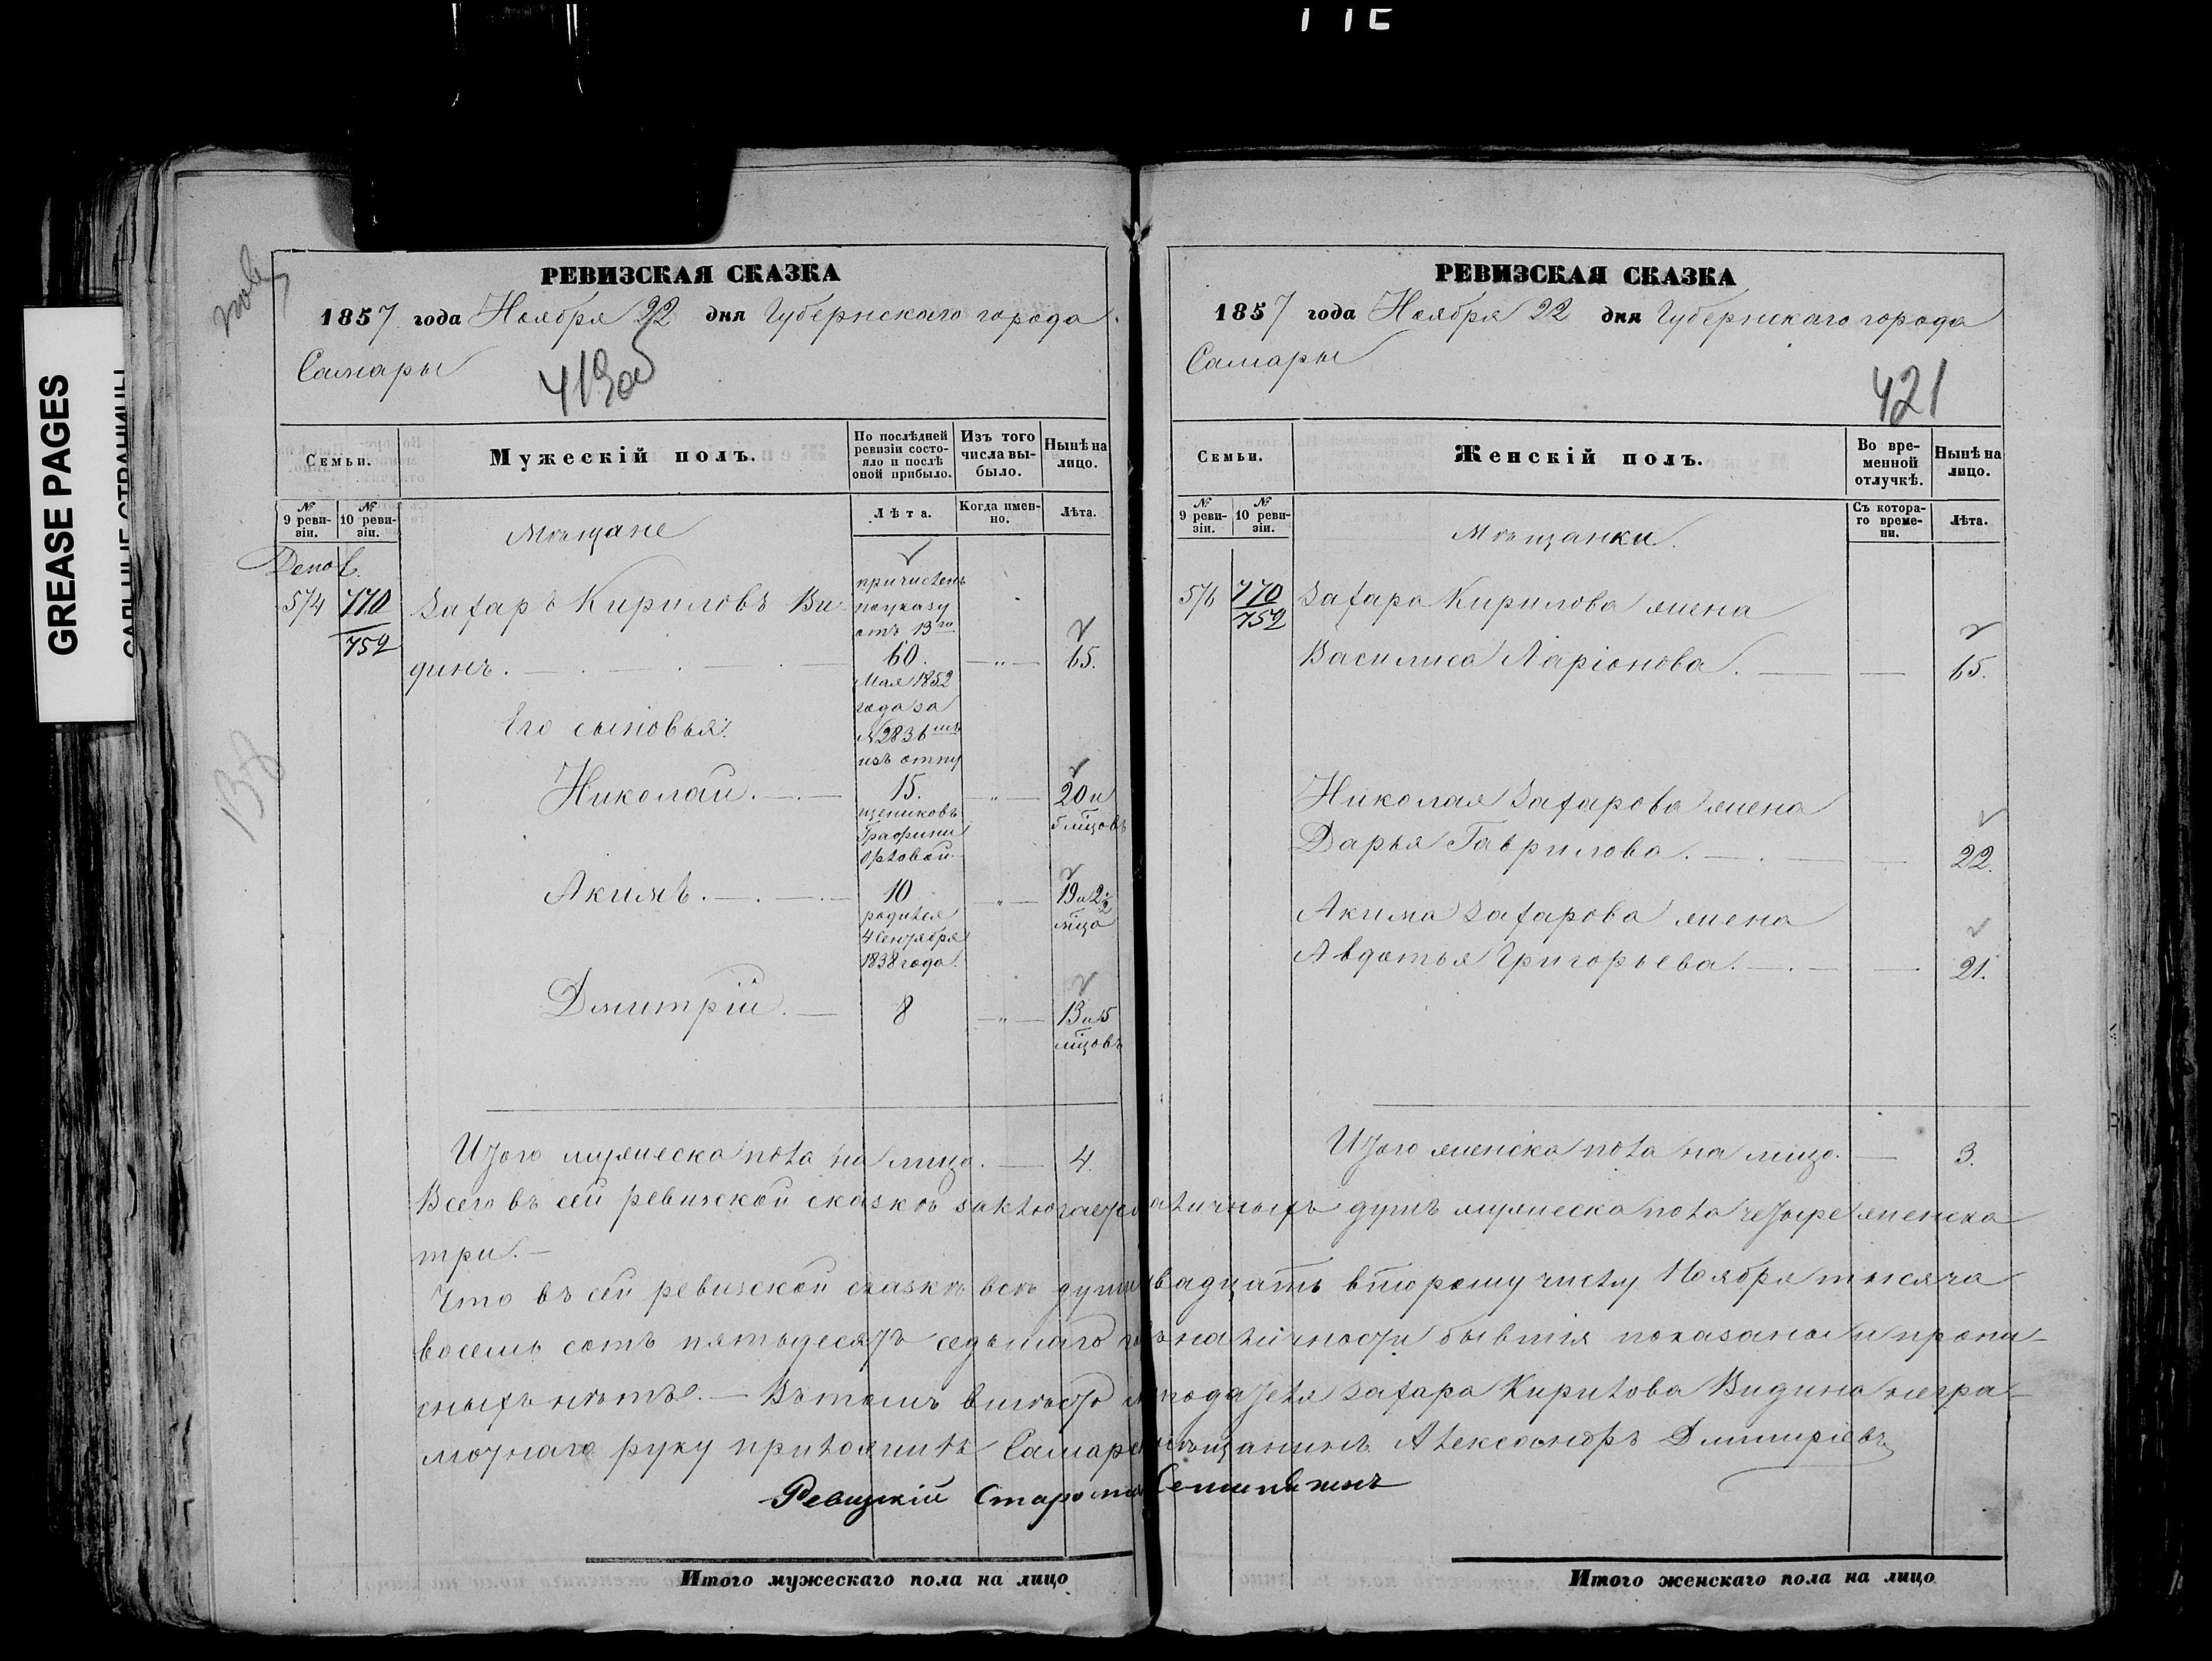 GREASE PAGES
РЕВИЗСКАЯ СКАЗКА
1857 года Ноября 22 дня Губернскаго города
Самары
419об
Семьи.
Мужескій полъ.
По послѣдней ревизіи состояло и послѣ оной прибыло.
Изъ того числа выбыло.
Нынѣ на лицо.
№ 9 ревизіи.
№ 10 ревизіи.
Мѣщане
Лѣта.
Когда именно.
Лѣта.
574 770/752 Захаръ Кириловъ Ви
динъ. 60. 65.
причисленъ
по указу
отъ 13го
Мая 1852
года за
№ 2836
изъ отпу
щениковъ
Графини
Орловой.
Его сыновья:
Николай. 15. 20 и
5 мцовъ
Акимъ. 10 19 и 2½
мца
родился
4 Сентября
1838 года.
Дмитрій. 8 13 и 5
мцовъ
Итого мужеска пола на лицо. 4.
РЕВИЗСКАЯ СКАЗКА
1857 года Ноября 22 дня Губернскаго города
Самары
421
Семьи.
Женскій полъ.
Во временной отлучкѣ.
Нынѣ на лицо.
№ 9 ревизіи.
№ 10 ревизіи.
Мѣщанки.
Съ котораго времени.
Лѣта.
576 770/752 Захара Кирилова жена
Василиса Ларіонова. 65.
Николая Захарова жена
Дарья Гаврилова. 22.
Акима Захарова жена
Авдотья Григорьева. 21.
Итого женска пола на лицо. 3.
Всего въ сей ревизской сказкѣ заключается наличныхъ душъ мужеска пола четыре женска
три.
Что въ сей ревизской сказкѣ всѣ души двадцать второму числу Ноября тысяча
восемь сотъ пятьдесятъ седьмаго въ наличности бывшія показаны и пропи-
сныхъ нѣтъ. — Въ томъ вмѣсто подателя Захара Кирилова Видина негра-
мотнаго руку приложилъ Самарскій мѣщанинъ Александръ Дмитріевъ
Ревизскій Староста
Итого мужескаго пола на лицо
Итого женскаго пола на лицо